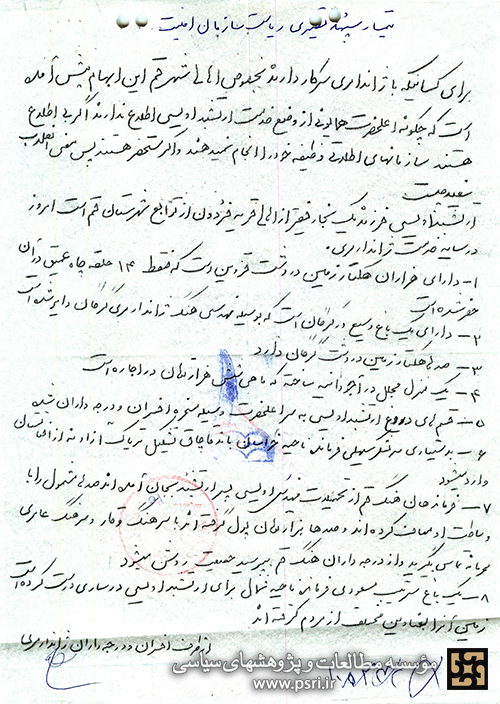 تیمسار سپهبد نصیری ریاست سازمان امنیت
برای کسانیکه با ژاندارمری سروکار دارند بخصوص اهالی شهر قم این ابهام پیش آمده
است که چگونه اعلیحضرت همایونی از وضع خدمت ارتشبد اویسی اطلاع ندارند اگر بی اطلاع
هستند سازمانهای اطلاعاتی وظیفه خود را انجام نمیدهند و اگر مستحضر هستند پس معنی انقلاب
سفید چیست
ارتشبد اویسی فرزند یک نجار فقیر از اهالی قریه فردو از توابع شهرستان قم است امروز
در سایه خدمت ژاندارمری.
۱- دارای هزاران هکتار زمین در دشت قزوین است که فقط ۱۴ حلقه چاه عمیق در آن
حفر شده است
۲- دارای یک باغ وسیع در گرگان است که بوسیله مهندسی هنگ ژاندارمری گرگان دایر شده است
۳- صدها هکتار زمین در دشت گرگان دارد
۴- یک منزل مجلل در آجودانیه ساخته که ماهی شش هزار تومان در اجاره است
۵- قسم های دروغ ارتشبد اویسی به سر اعلیحضرت وسیله مسخره افسران و درجه داران شده
۶- بدستیاری سرتیپ فرمانده ناحیه خراسان باند قاچاق تشکیل تریاک آزادانه از افغانستان
وارد میشود
۷- فرماندهان هنگ قم از تحصیلات اویسی پسر ارتشبد آمده اند صدها مشمول را با
وساطت او معاف کرده اند و صدها هزار تومان پول گرفته اند با سرهنگ وقار و سرهنگ عامری
محرمانه تماس بگیرید و از درجه داران هنگ قم بپرسید حقیقت روشن میشود
۸- یک باغ سرتیپ مسعودی فرمانده ناحیه شمال برای ارتشبد اویسی در ساری درست کرده است
زمین آنرا بعناوین مختلف از مردم گرفته اند
از طرف افسران و درجه داران ژاندارمری
مؤسسه مطالعات و پژوهشهای سیاسی
www.psri.ir